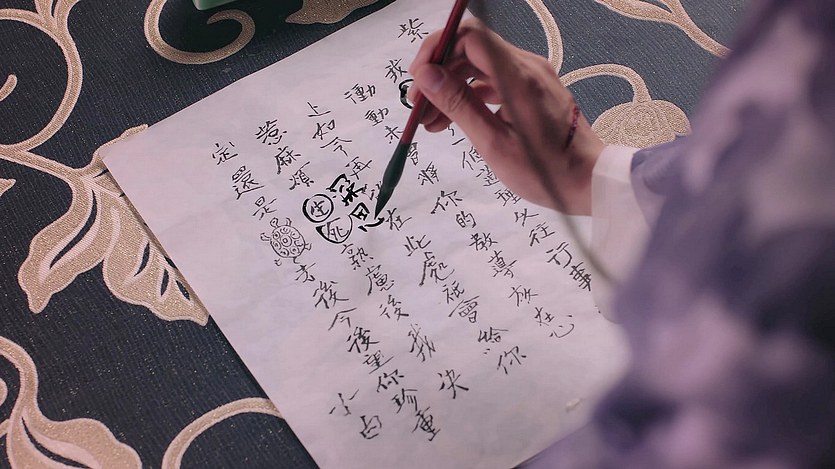 紫
我一個道理以往行事
衝動未曾將你的教導放在心
上如今再在此處祇會給你
深思
惹麻煩生死熟慮後我決
定還是去後今後望你珍重
小白